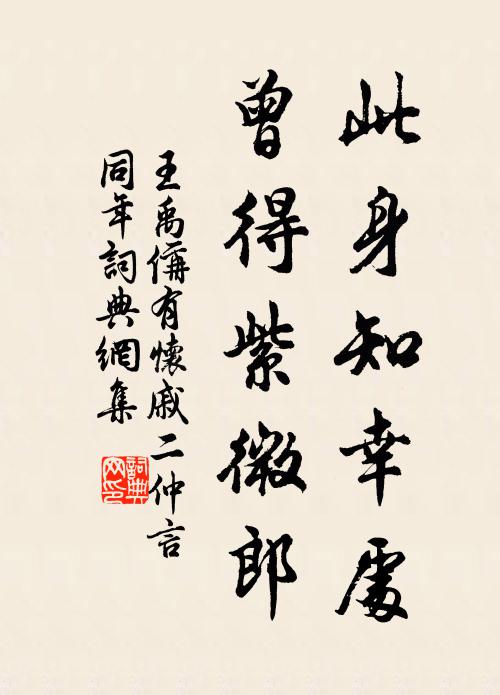 此身知幸處
曾得紫微郎
王禹偁有懷戚二仲言
同年詞典網集
詞典網印